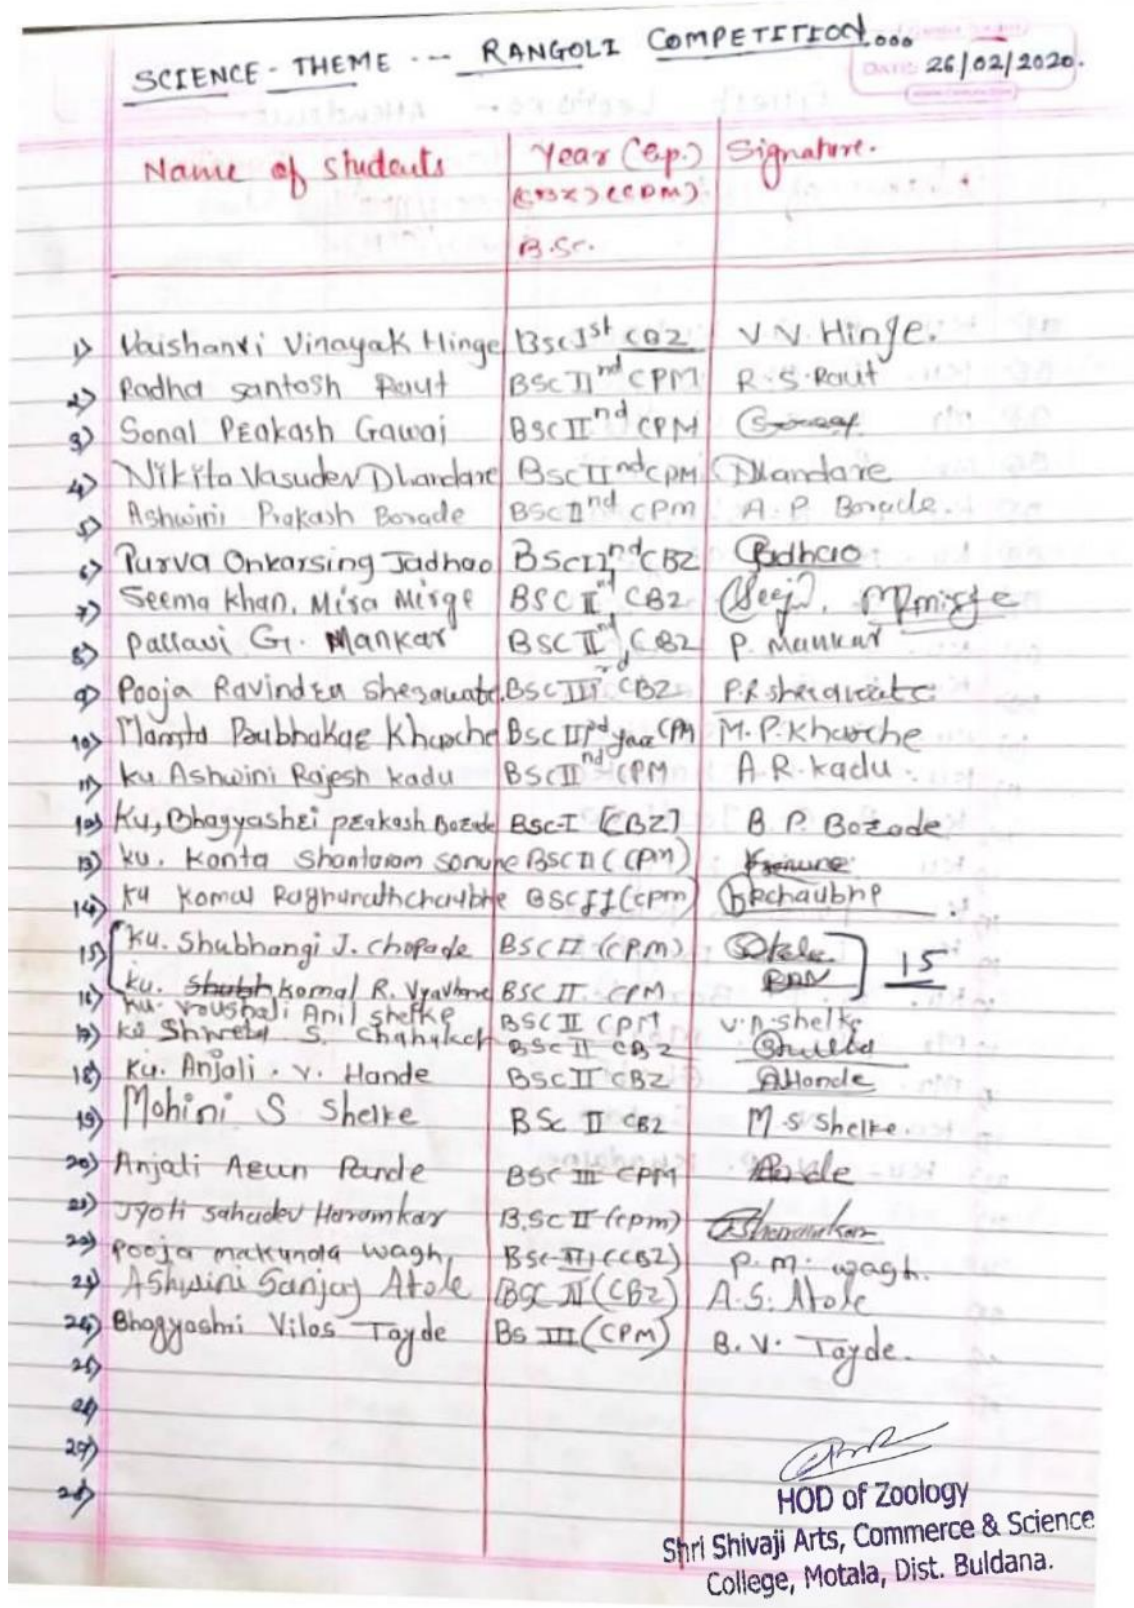 SCIENCE - THEME --- RANGOLI COMPETITION...
DATE: 26/02/2020.
Name of students Year (Gp.) Signature.
(CBZ) (CPM)
B.Sc.
1) Vaishanvi Vinayak Hinge BscIst CBZ V.V. Hinge.
2) Radha santosh Raut BSc IInd CPM R.S. Raut
3) Sonal Prakash Gawai BSc IInd CPM
4) Nikita Vasudev Dhandare BscIInd CPM Dhandare
5) Ashwini Prakash Borade BSCIInd CPM A.P. Borade.
6) Purva Onkarsing Jadhao BScIInd CBZ Jadhao
7) Seema Khan, Mira Mirge BSC IInd CBZ
8) Pallavi G. Mankar BSC IInd, CBZ P. Mankar
9) Pooja Ravindra Sherawate. BSc IIIrd CBZ P.R. Sherawate.
10) Mamta Prabhakar Kharche BSc IIIrd year CPM M.P. Kharche
11) Ku. Ashwini Rajesh kadu BSCIInd CPM A.R. kadu.
12) Ku, Bhagyashri prakash Borade BSC-I [CBZ] B.P. Borade
13) ku. Kanta Shantaram sonune BSC II (CPM) Ksonune
14) Ku Komal Raghunathchaubhe BSC II (cpm) KRchaubhe
15) Ku. Shubhangi J. Chopade BSC II (CPM) 15
16) Ku. Shubh Komal R. Vyavhare BSC II CPM
Ku. Vaushali Anil Shelke BSC II CPM V.A. Shelke
17) Ku Shweta S. BSC II CBZ
18) Ku. Anjali . V. Hande BSC II CBZ AHande
19) Mohini S Shelke BSc II CBZ M.S Shelke.
20) Anjali Arun Pande BSC III CPM Pande
21) Jyoti Sahadev Haramkar B.SC II (cpm)
22) Pooja makunda wagh. BSc-III (CBZ) P.M. wagh.
23) Ashwini Sanjay Atole BSC II (CBZ) A.S. Atole
24) Bhagyashri Vilas Tayde Bs III (CPM) B.V. Tayde.
25)
26)
27)
28)
HOD of Zoology
Shri Shivaji Arts, Commerce & Science
College, Motala, Dist. Buldana.